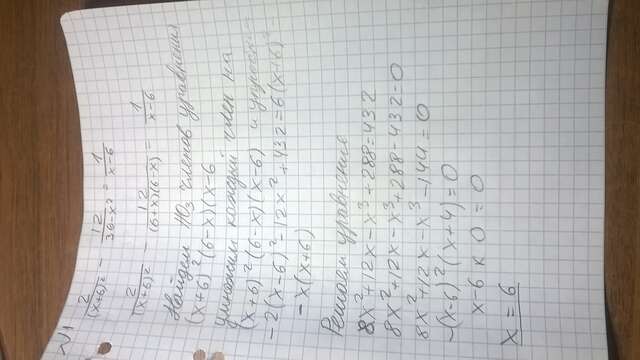 √1 2/(x+6)² - 12/36-x² = 1/x-6
2/(x+6)² - 12/(6+x)(6-x) = 1/x-6
Найдем НОЗ членов уравнения
(x+6)²(6-x)(x-6
умножим каждый член на
(x+6)²(6-x)(x-6) и
-2(x-6)²-12x²+432=6(x+6)²
-x(x+6)
Решаем уравнение
8x²+12x-x³+288=432
8x²+12x-x³+288-432=0
8x²+12x-x³-144=0
-(x-6)²(x+4)=0
x-6 к 0=0
x=6